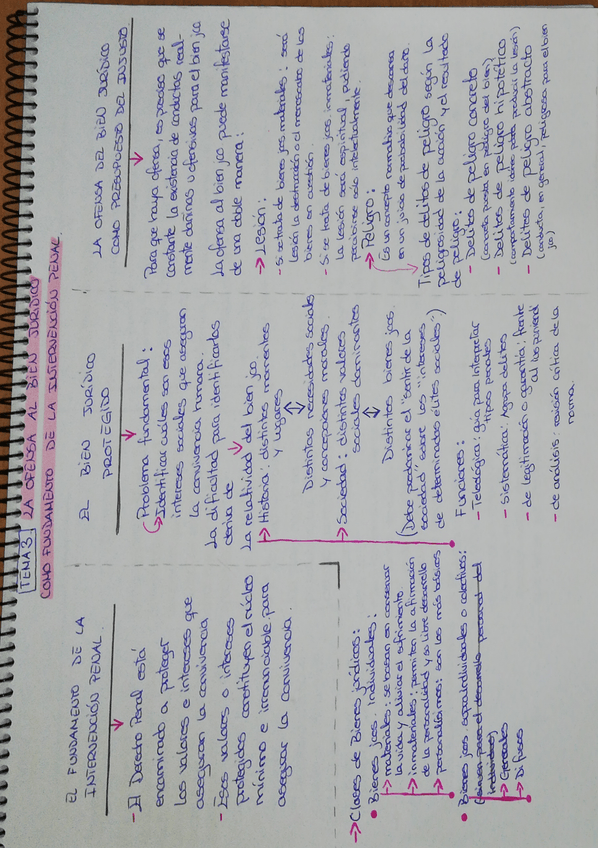 TEMA 3. LA OFENSA AL BIEN JURÍDICO
COMO FUNDAMENTO DE LA INTERVENCIÓN PENAL.
EL FUNDAMENTO DE LA
INTERVENCIÓN PENAL.
- El Derecho Penal está
encaminado a proteger
los valores e intereses que
aseguran la convivencia
- Esos valores o intereses
protegidos constituyen el núcleo
mínimo e irrenunciable para
asegurar la convivencia.
→ Clases de Bienes jurídicos:
• Bienes jcos. individuales:
→ materiales: se basan en conservar
la vida y aliviar el sufrimiento
→ inmateriales: permiten la afirmación
de la personalidad y su libre desarrollo
→ personalísimos: son los más básicos
• Bienes jcos. supraindividuales o colectivos:
(sirven para el desarrollo personal del
individuo)
→ Generales
→ Difusos
EL BIEN JURÍDICO
PROTEGIDO
Problema fundamental:
→ Identificar cuáles son esos
intereses sociales que aseguran
la convivencia humana.
La dificultad para identificarlos
deriva de
La relatividad del bien jco.
→ Historia: distintos momentos
y lugares
Distintas necesidades sociales
y concepciones morales.
→ Sociedad: distintos valores
sociales dominantes
Distintos bienes jcos.
(Debe predominar el "sentir de la
sociedad" sobre los "intereses
de determinadas élites sociales".)
Funciones:
- Teleológica: guía para interpretar
tipos penales
- Sistemática: Agrupa delitos
- de legitimación o garantía: frente
al ius puniendi
- de análisis: revisión crítica de la
norma.
LA OFENSA DEL BIEN JURÍDICO
COMO PRESUPUESTO DEL INJUSTO
Para que haya ofensa, es preciso que se
constante la existencia de conductas real-
mente dañinas u ofensivas para el bien jco
La ofensa al bien jco puede manifestarse
de una doble manera:
→ Lesión:
- si se trata de bienes jcos materiales: será
lesión la destrucción o el menoscabo de los
bienes en cuestión.
- Si se trata de bienes jcos. inmateriales:
la lesión será espiritual, pudiendo
percibirse solo intelectualmente.
→ Peligro:
Es un concepto normativo que descansa
en un juicio de probabilidad del daño.
Tipos de delitos de peligro según la
peligrosidad de la acción y el resultado
de peligro:
- Delitos de peligro concreto
(concreta puesta en peligro del bien)
- Delitos de peligro hipotético
(comportamiento idóneo para producir la lesión)
- Delitos de peligro abstracto
(conducta, en general, peligrosa para el bien
jco)